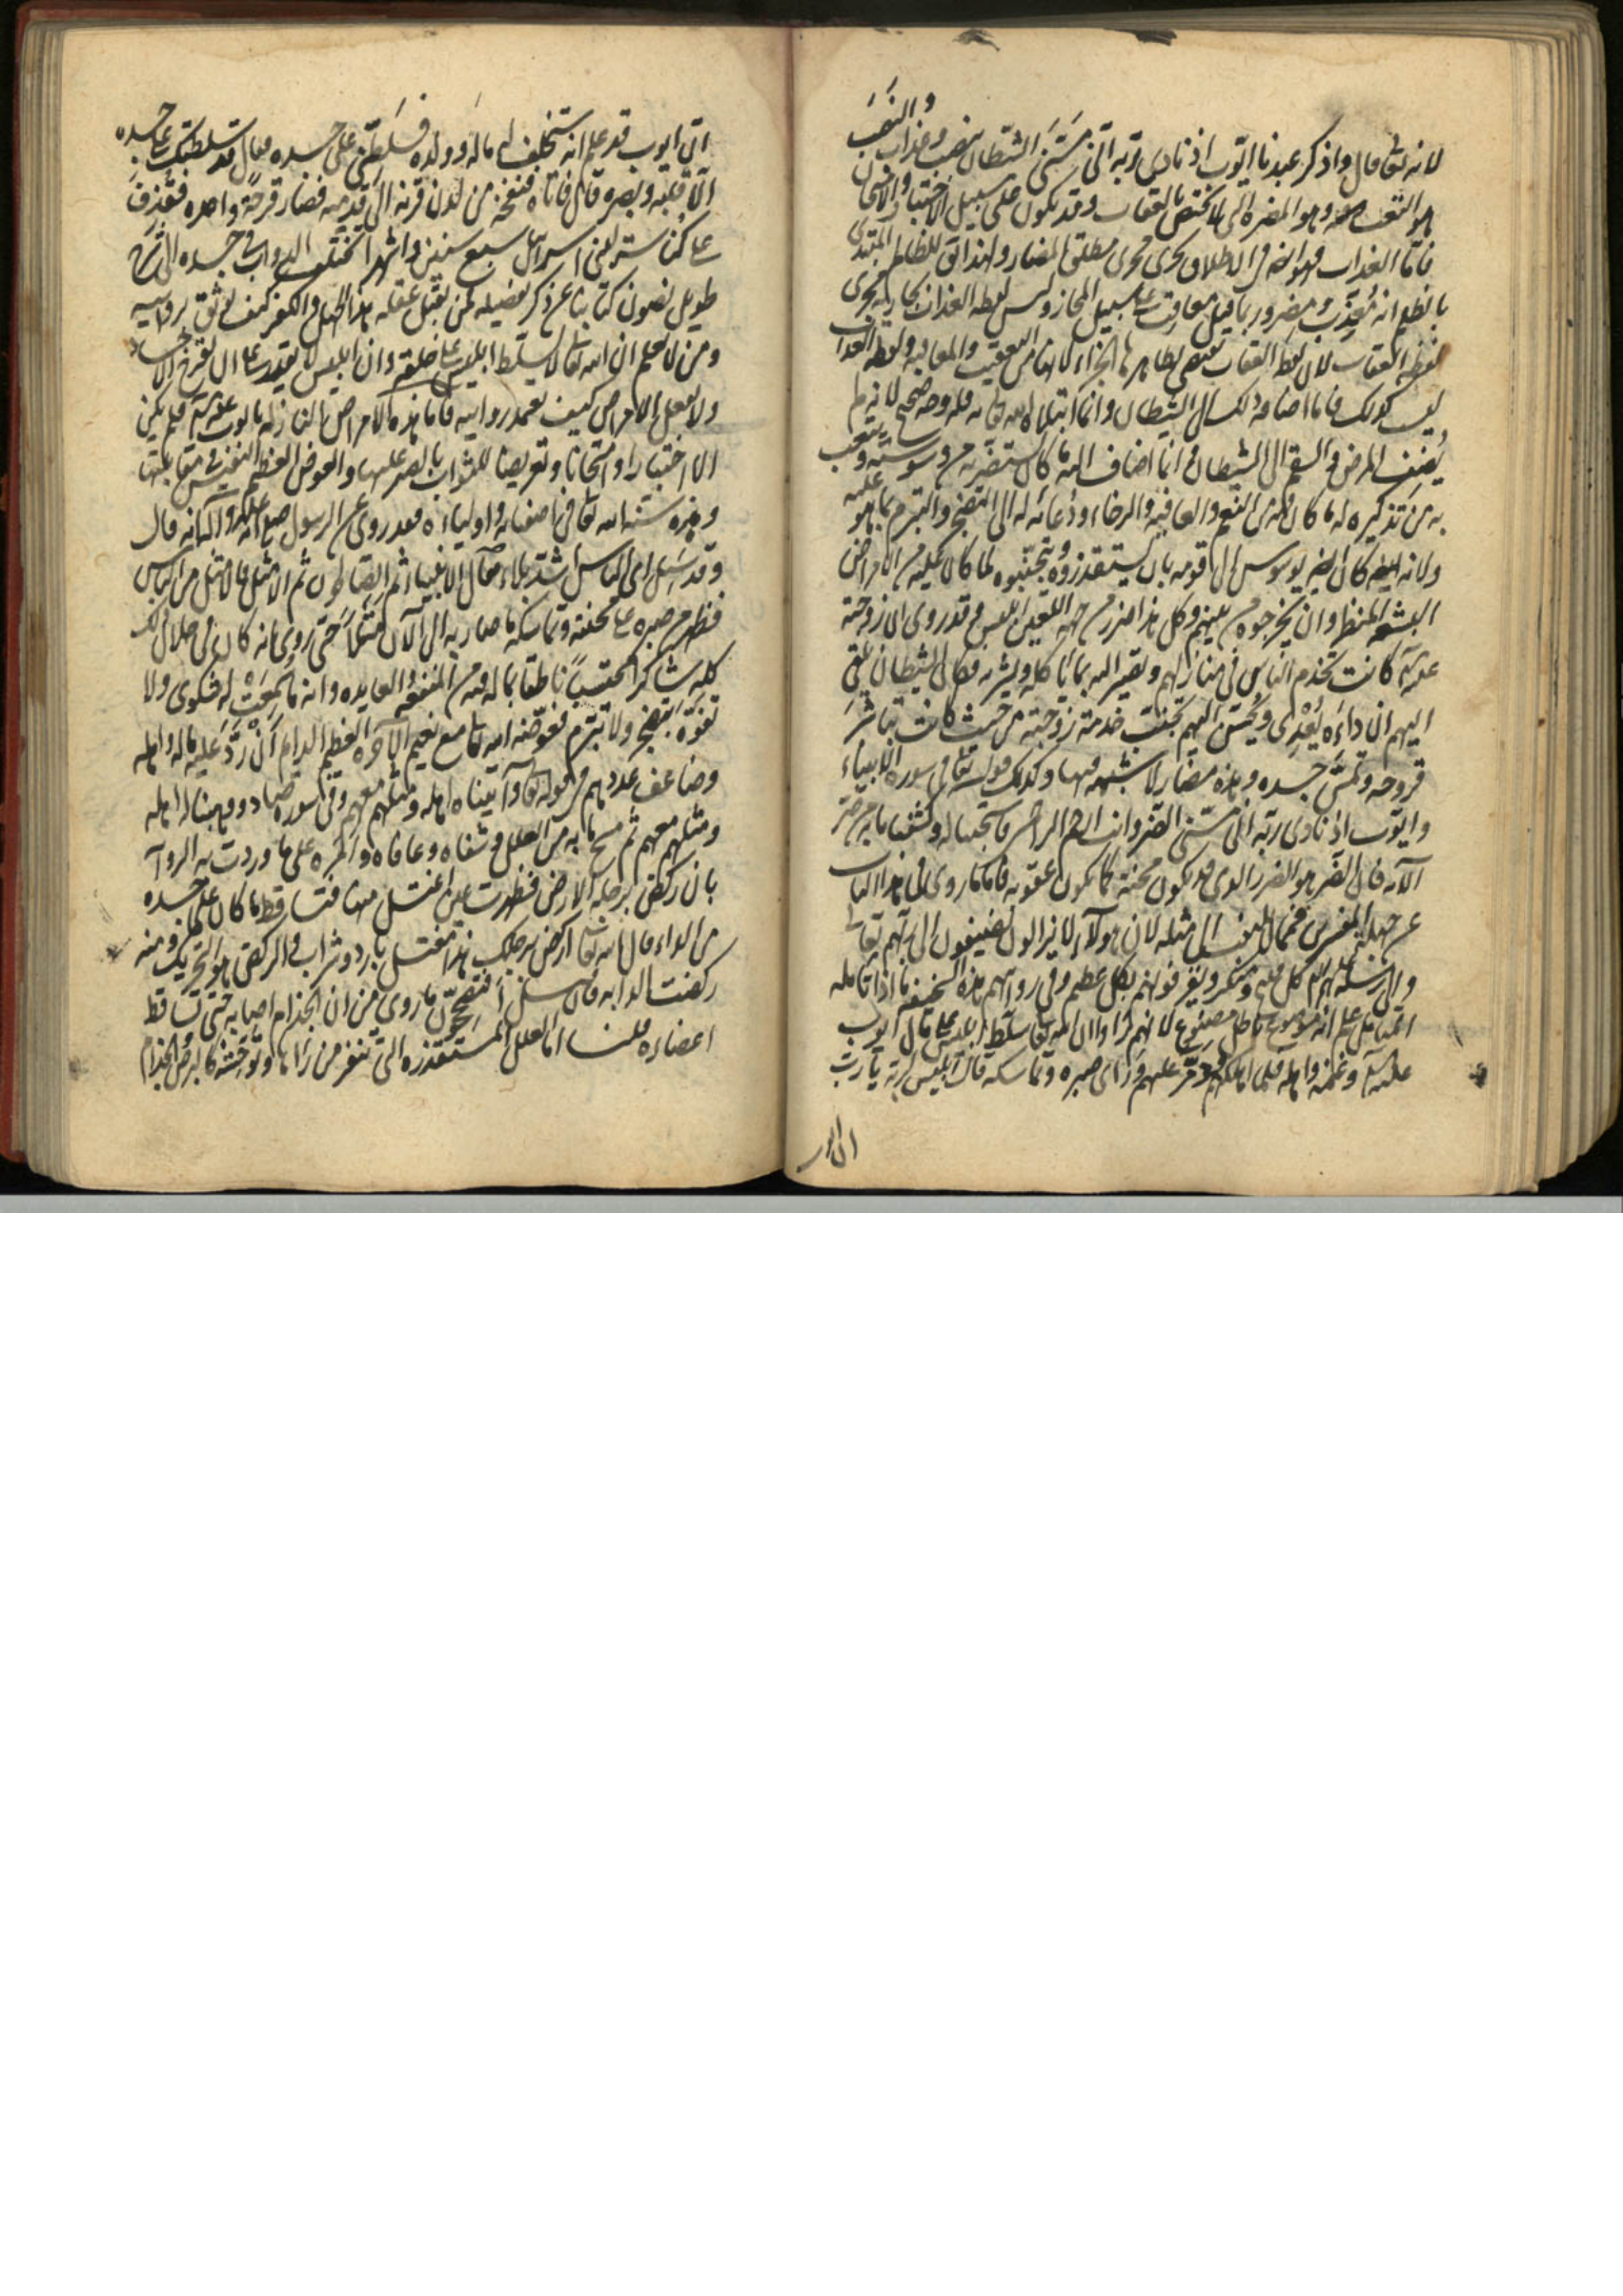 لانه تعالى قال واذكر عبدنا ايوب اذ نادى ربه انى مسنى الشيطان بنصب وعذاب والنصب
هو التعب وهو المضرة التى لا تختص بالعقاب وقد تكون على سبيل الاختبار والامتحان
فاما العذاب فهو ايضا فى الاطلاق يجرى مجرى مطلق المضار ولهذا يقال للظالم المبتدى
بالظلم انه معذب ومضر وربما قيل معاقب على سبيل المجاز وليس لفظة العذاب بجارية مجرى
لفظة العقاب لان لفظة العقاب تقتضى بظاهرها الجزاء لانها من التعقيب والمعاقبة ولفظة العذاب
ليس كذلك فاما اضافة ذلك الى الشيطان وانما ابتلاه الله تعالى به فله وجه صحيح لانه لم
يضف المرض والسقم الى الشيطان وانما اضاف اليه ما كان يستضر به من وسوسته ويتعب
به من تذكيره له ما كان فيه من النعم والعافية والرخاء ودعائه له الى التضجر والتبرم بما هو عليه
ولانه ايضا كان يوسوس الى قومه بان يستقذروه ويتجنبوه لما كان عليه من الامراض
البشعة المنظر وان يخرجوه من بينهم وكل هذا ضرر من جهة اللعين ابليس وقد روى ان زوجته
عليه السلام كانت تخدم الناس فى منازلهم وتصير اليه بما ياكله ويشربه فكان الشيطان يلقى
اليهم ان داءه يعدى ويحسن اليهم تجنب خدمة زوجته من حيث كانت تباشر
قروحه وتمس جسده وهذه مضار لا شبهة فيها وكذلك قوله تعالى فى سورة الانبياء
وايوب اذ نادى ربه انى مسنى الضر وانت ارحم الراحمين فاستجبنا له وكشفنا ما به من ضر
الآية فان الضر هو الضرر الذى قد يكون محنة كما يكون عقوبة فاما ما روى فى هذا الباب
عن جهلة المفسرين فمما لا يلتفت الى مثله لان هؤلاء لا يزالون يضيفون الى ربهم تعالى
والى رسله عليهم السلام كل قبيح ومنكر ويقرفونهم بكل عظيم وفى روايتهم هذه السخيفة ما اذا تأمله
المتأمل علم انه موضوع باطل مصنوع لانهم رووا ان الله تعالى سلط ابليس على مال ايوب
عليه السلام وغنمه واهله فلما اهلكهم ودمر عليهم ورأى صبره وتماسكه قال ابليس لربه يا رب
ان ايوب
ان ايوب قد علم انه ستخلف له ماله وولده فسلطنى على جسده فقال قد سلطتك على جسده
الا قلبه وبصره قال فاتاه فنفخه من لدن قرنه الى قدمه فصار قرحة واحدة فقذف
على كناسة لبنى اسرائيل سبع سنين واشهرا تختلف الدواب فى جسده الى شرح
طويل نصون كتابنا عن ذكر تفصيله فمن يقبل عقله هذا الجهل والكفر كيف يوثق بروايته
ومن لا يعلم ان الله تعالى لا يسلط ابليس على خلقه وان ابليس لا يقدر على ان يقرح الاجساد
ولا يفعل الامراض كيف يعتمد روايته فاما هذه الامراض النازلة بايوب عليه السلام فلم يكن
الا اختبارا وامتحانا وتعريضا للثواب بالصبر عليها والعوض العظيم النفيس فى مقابلتها
وهذه سنة الله تعالى فى اصفيائه واوليائه فقد روى عن الرسول صلى الله عليه وآله انه قال
وقد سئل اى الناس اشد بلاء فقال الانبياء ثم الصالحون ثم الامثل فالامثل من الناس
فظهر من صبره على محنته وتماسكه ما صار به الى الآن مثلا حتى روى انه كان فى خلال ذلك
كله شاكرا محتسبا ناطقا بما له فيه من المنفعة والفايدة وانه ما سمعت له شكوى ولا
تفوه بتضجر ولا تبرم فعوضه الله تعالى مع نعيم الآخرة العظيم الدايم ان رد عليه ماله واهله
وضاعف عددهم فى قوله تعالى وآتيناه اهله ومثلهم معهم وفى سورة صاد ووهبنا له اهله
ومثلهم معهم ثم مسح ما به من العلل وشفاه وعافاه وامره على ما وردت به الرواية
بان ركض برجله الارض فظهرت عين اغتسل منها فتساقط ما كان على جسده
من الداء قال الله تعالى اركض برجلك هذا مغتسل بارد وشراب والركض هو التحريك ومنه
ركضت الدابة فان سئل افتصححون ما روى من ان الجذام اصابه حتى تساقط
اعضاؤه قلنا اما العلل المستقذرة التى تنفر من رآها وتوحشه كالبرص والجذام